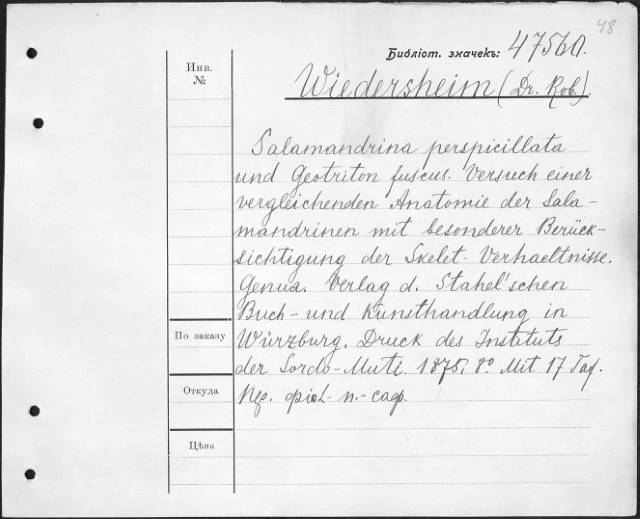 48
Библіот. значекъ: 47560.
Инв.
№
Wiedersheim (Dr. Rob.)
Salamandrina perspicillata
und Geotriton fuscus. Versuch einer
vergleichenden Anatomie der Sala-
mandrinen mit besonderer Berück-
sichtigung der Skelet-Verhaeltnisse.
Genua. Verlag d. Stahel'schen
Buch- und Kunsthandlung in
По заказу
Würzburg. Druck des Instituts
der Sordo-Muti. 1875. 8° Mit 17 Taf.
Откуда
Цѣна